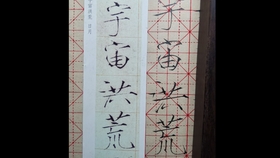 宇宙洪荒
宇宙洪荒